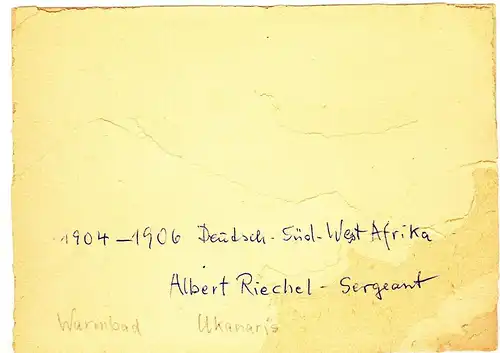 1904 – 1906 Deutsch-Süd-West Afrika
Albert Riechel - Sergeant
Warmbad Ukamas